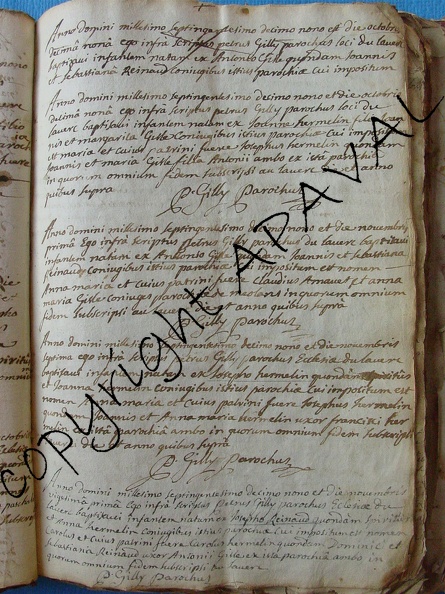 Anno domini millesimo septingentesimo decimo nono et die octobris
decima nona ego infra scriptus petrus Gilly parochus loci du lauere
baptizavi infantem natam ex Antonio Gille quondam Joannis
et sebastiana Reinaud coniugibus istius parochiæ cui impositum
Anno domini millesimo septingentesimo decimo nono et die octobris
decima nona ego infra scriptus petrus Gilly parochus loci du
lauere baptizavi infantem natam ex Joanna hermelin
et margarita Gille coniugibus istius parochiæ cui impositum
et maria et cuius patrini fuere Josephus hermelin quondam
Joannis et maria Gille filia Antonii ambo ex ista parochia
in quorum omnium fidem subscripsi au lauere die et anno
quibus supra
P. Gilly Parochus
Anno domini millesimo septingentesimo decimo nono et die novembris
prima Ego infra scriptus petrus Gilly parochus du lauere baptizavi
infantem natam ex Antonio Gille quondam Joannis et sebastiana
Reinaud coniugibus istius parochiæ cui impositum est nomen
Anna maria et cuius patrini fuere Claudius Arnaud et anna
maria Gille coniuges parochiæ de in quorum omnium
fidem subscripsi au lauere die et anno quibus supra
P. Gilly Parochus
Anno domini millesimo septingentesimo decimo nono et die novembris
septima ego infra scriptus petrus Gilly parochus Ecclesiæ du lauere
baptizavi infantem natam ex Josepho hermelin quondam spiritus
et Joanna hermelin coniugibus istius parochiæ cui impositum est
nomen Anna maria et cuius patrini fuere Josephus hermelin
quondam Joannis et Anna maria hermelin uxor francisci her
melin ex ista parochia ambo in quorum omnium fidem subscripsi
die et anno quibus supra
P. Gilly Parochus
Anno domini millesimo septingentesimo decimo nono et die novembris
vigesima prima Ego infra scriptus petrus Gilly parochus Ecclesiæ du
lauere baptizavi infantem natam ex Josepho Reinaud quondam spiritus
et Anna hermelin coniugibus istius parochiæ cui impositum est nomen
Carolus et cuius patrini fuere Carolus hermelin quondam Dominici et
sebastiana Reinaud uxor Antonii Gille ex ista parochia ambo in
quorum omnium fidem subscripsi au lauere
P. Gilly Parochus
Copyright APAVAL